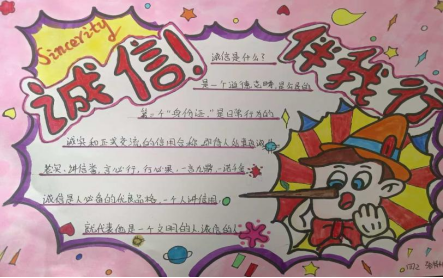 Sincerity
诚信!伴我行
诚信是什么?
是一个道德范畴,是公民的
第二个"身份证",是日常行为的
诚实和正式交流的信用合称,即待人处事真诚、
老实、讲信誉,言必行,行必果,一言九鼎,一诺千金
诚信是人必备的优良品格,一个人讲信用,
就代表他是一个文明的人,诚信的人